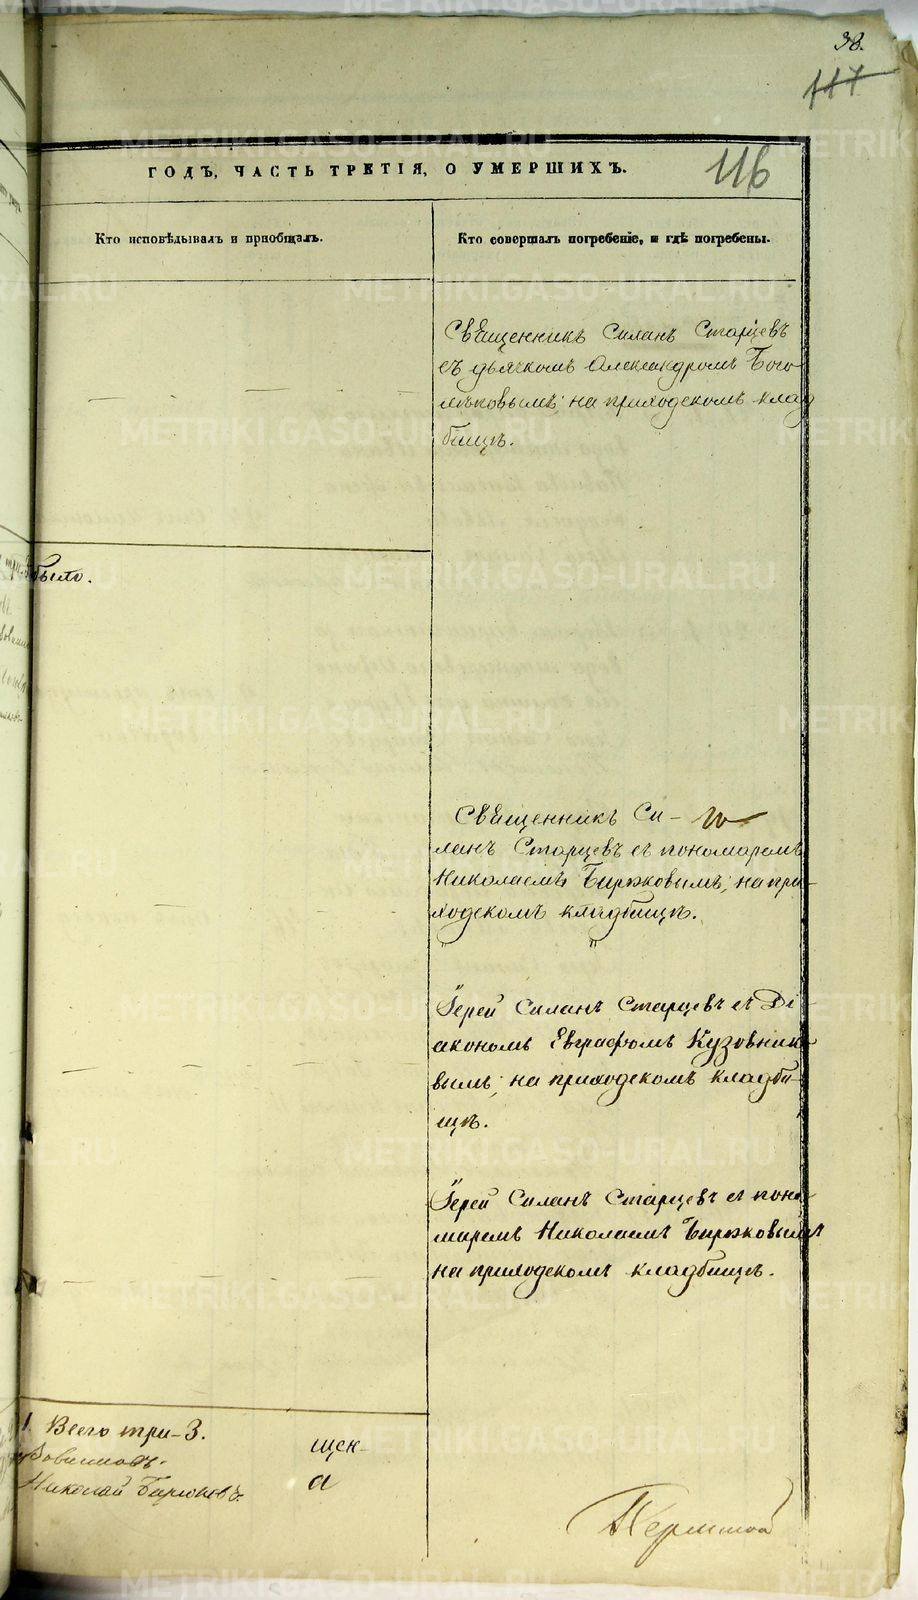 38.
117
116
ГОДЪ, ЧАСТЬ ТРЕТІЯ, О УМЕРШИХЪ.
Кто исповѣдывалъ и пріобщалъ.
Кто совершалъ погребеніе, и гдѣ погребены.
Священникъ Силанъ Старцевъ
съ дьячкомъ Александромъ Бого-
лѣповымъ; на приходскомъ клад
бищѣ.
было.
Священникъ Си-
ланъ Старцевъ съ пономаремъ
Николаемъ Бирюковымъ; на при-
ходскомъ кладбищѣ.
Іерей Силанъ Старцевъ съ Ді-
акономъ Евграфомъ Кузовник
вымъ; на приходскомъ кладби-
щѣ.
Іерей Силанъ Старцевъ съ поно
маремъ Николаемъ Бирюковымъ
на приходскомъ кладбищѣ.
Всего три-3.
щен-
Николай Бирюковъ.
а
METRIKI.GASO-URAL.RU